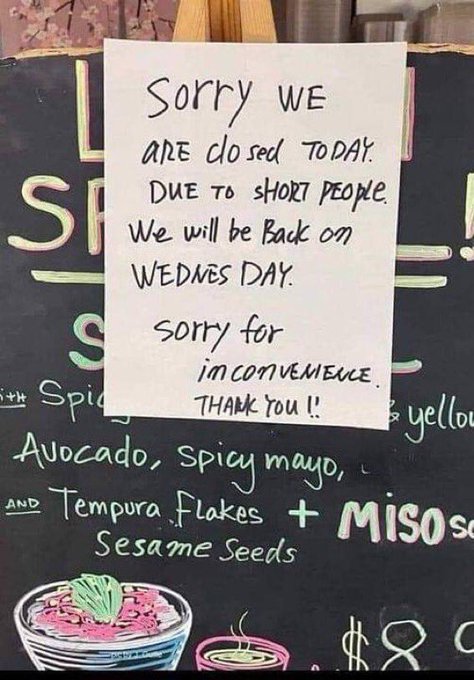 Sorry WE
ARE closed TODAY.
DUE TO SHORT PEOPLE.
We will be Back on
WEDNESDAY.
sorry for
inconVENIENCE.
THANK YOU !!
L
SP !
S
with Spic & yellow
Avocado, spicy mayo,
AND Tempura Flakes + MISO
Sesame Seeds
$8